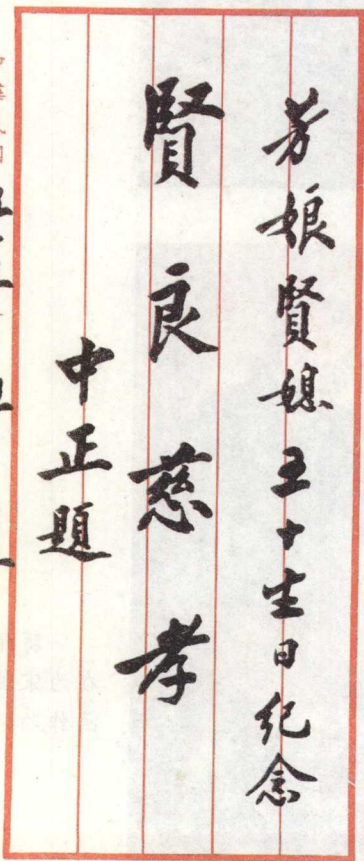 芳娘賢媳五十生日紀念
賢良慈孝
中正題
中華民國